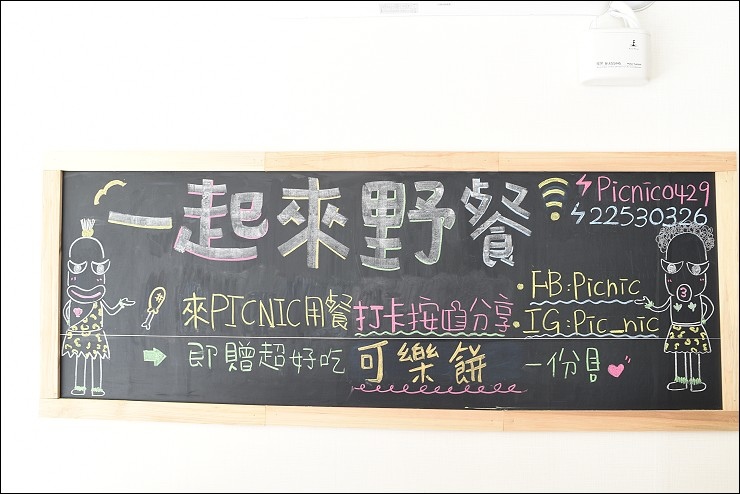 一起來野餐
Picnic0429
22530326
來PICNIC用餐打卡按讚分享
FB:Picnic
IG:Pic_nic
即贈超好吃 可樂餅 一份